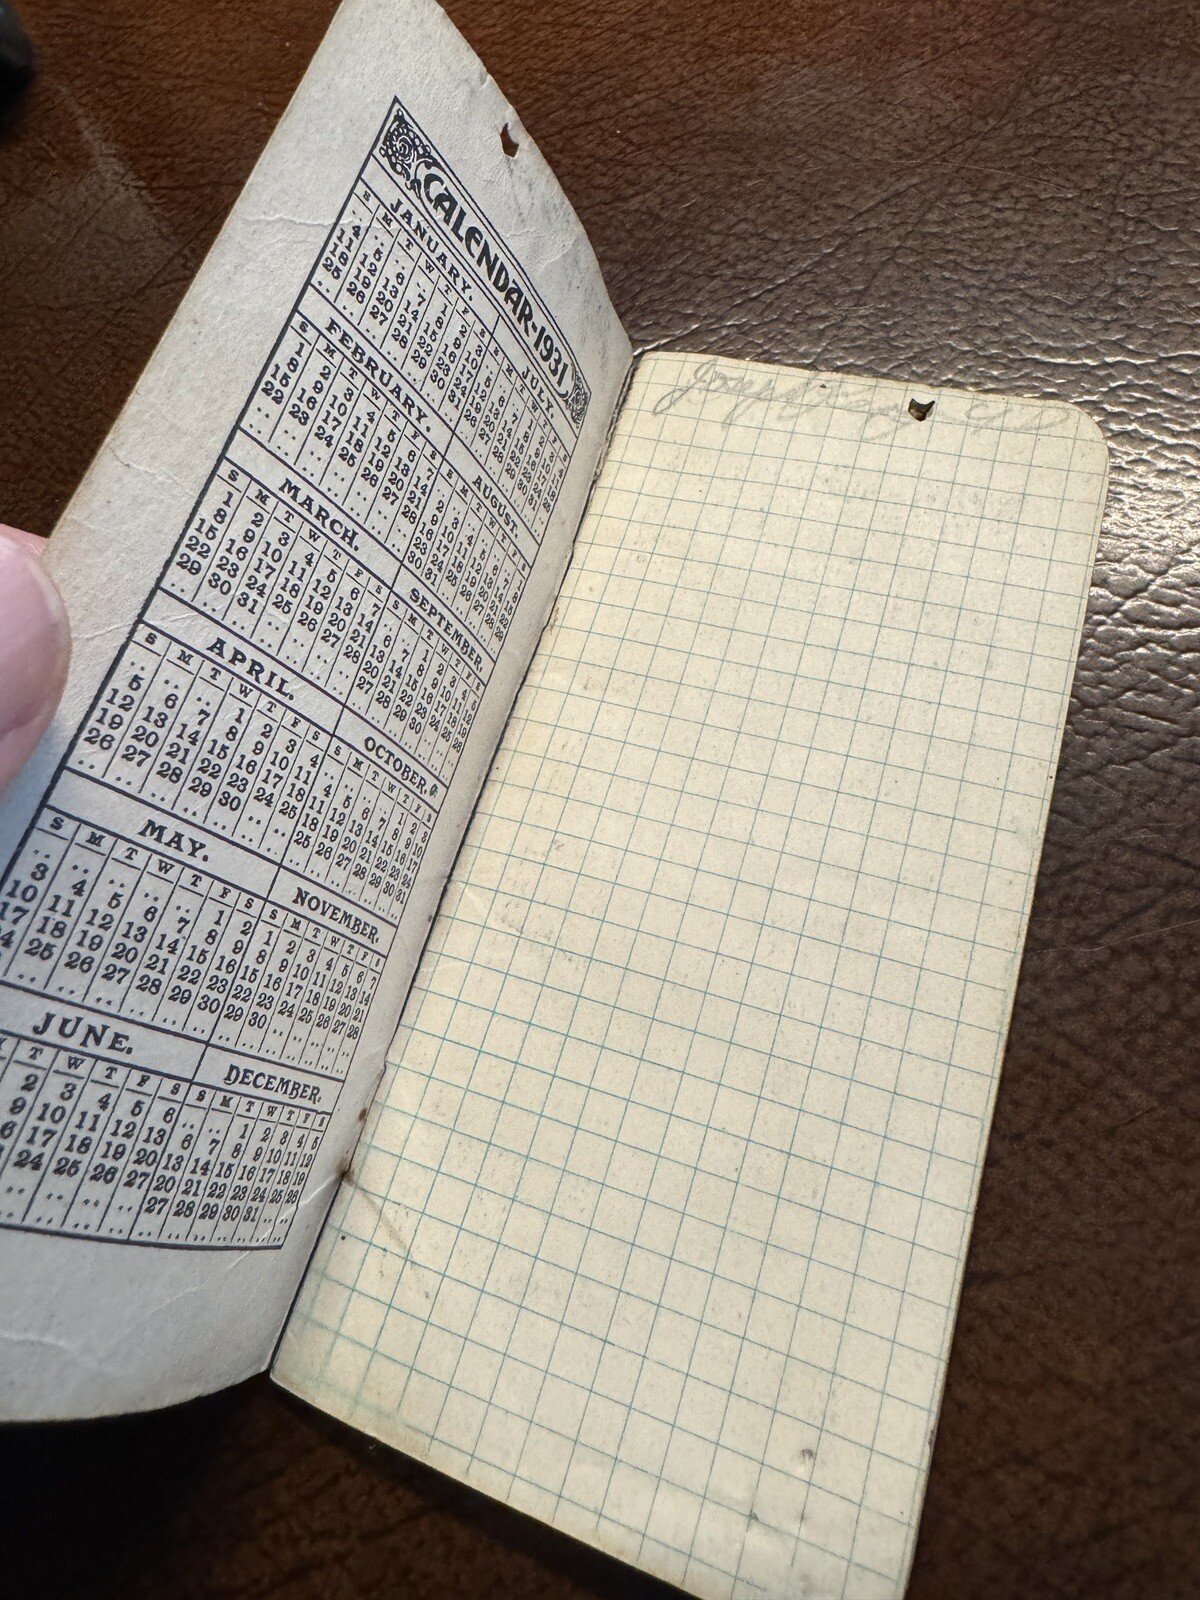 CALENDAR-1931
JANUARY.
S M T W T F S
.. .. .. .. 1 2 3
4 5 6 7 8 9 10
11 12 13 14 15 16 17
18 19 20 21 22 23 24
25 26 27 28 29 30 31
JULY.
S M T W T F S
.. .. .. 1 2 3 4
5 6 7 8 9 10 11
12 13 14 15 16 17 18
19 20 21 22 23 24 25
26 27 28 29 30 31 ..
FEBRUARY.
S M T W T F S
1 2 3 4 5 6 7
8 9 10 11 12 13 14
15 16 17 18 19 20 21
22 23 24 25 26 27 28
AUGUST.
S M T W T F S
.. .. .. .. .. .. 1
2 3 4 5 6 7 8
9 10 11 12 13 14 15
16 17 18 19 20 21 22
23 24 25 26 27 28 29
30 31 .. .. .. .. ..
MARCH.
S M T W T F S
1 2 3 4 5 6 7
8 9 10 11 12 13 14
15 16 17 18 19 20 21
22 23 24 25 26 27 28
29 30 31 .. .. .. ..
SEPTEMBER.
S M T W T F S
.. .. 1 2 3 4 5
6 7 8 9 10 11 12
13 14 15 16 17 18 19
20 21 22 23 24 25 26
27 28 29 30 .. .. ..
APRIL.
S M T W T F S
.. .. .. 1 2 3 4
5 6 7 8 9 10 11
12 13 14 15 16 17 18
19 20 21 22 23 24 25
26 27 28 29 30 .. ..
OCTOBER.
S M T W T F S
.. .. .. .. 1 2 3
4 5 6 7 8 9 10
11 12 13 14 15 16 17
18 19 20 21 22 23 24
25 26 27 28 29 30 31
MAY.
S M T W T F S
.. .. .. .. .. 1 2
3 4 5 6 7 8 9
10 11 12 13 14 15 16
17 18 19 20 21 22 23
25 26 27 28 29 30
NOVEMBER.
S M T W T F S
1 2 3 4 5 6 7
8 9 10 11 12 13 14
15 16 17 18 19 20 21
22 23 24 25 26 27 28
29 30 .. .. .. .. ..
JUNE.
T W T F S
2 3 4 5 6
9 10 11 12 13
17 18 19 20
24 25 26 27
DECEMBER.
S M T W T F S
.. .. 1 2 3 4 5
6 7 8 9 10 11 12
13 14 15 16 17 18 19
20 21 22 23 24 25 26
27 28 29 30 31 .. ..